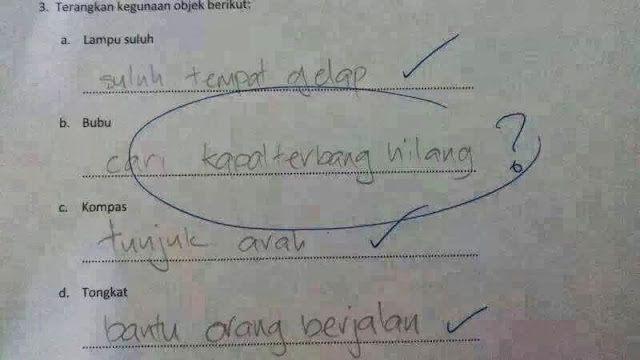 3. Terangkan kegunaan objek berikut:
a. Lampu suluh
suluh tempat gelap
b. Bubu
cari kapalterbang hilang ?
c. Kompas
tunjuk arah
d. Tongkat
bantu orang berjalan